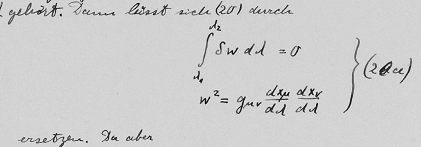 gehört. Dann lässt sich (20) durch
∫_{λ₁}^{λ₂} δw dλ = 0
w² = g_{μν} dx_μ/dλ dx_ν/dλ } (20a)
ersetzen. Da aber